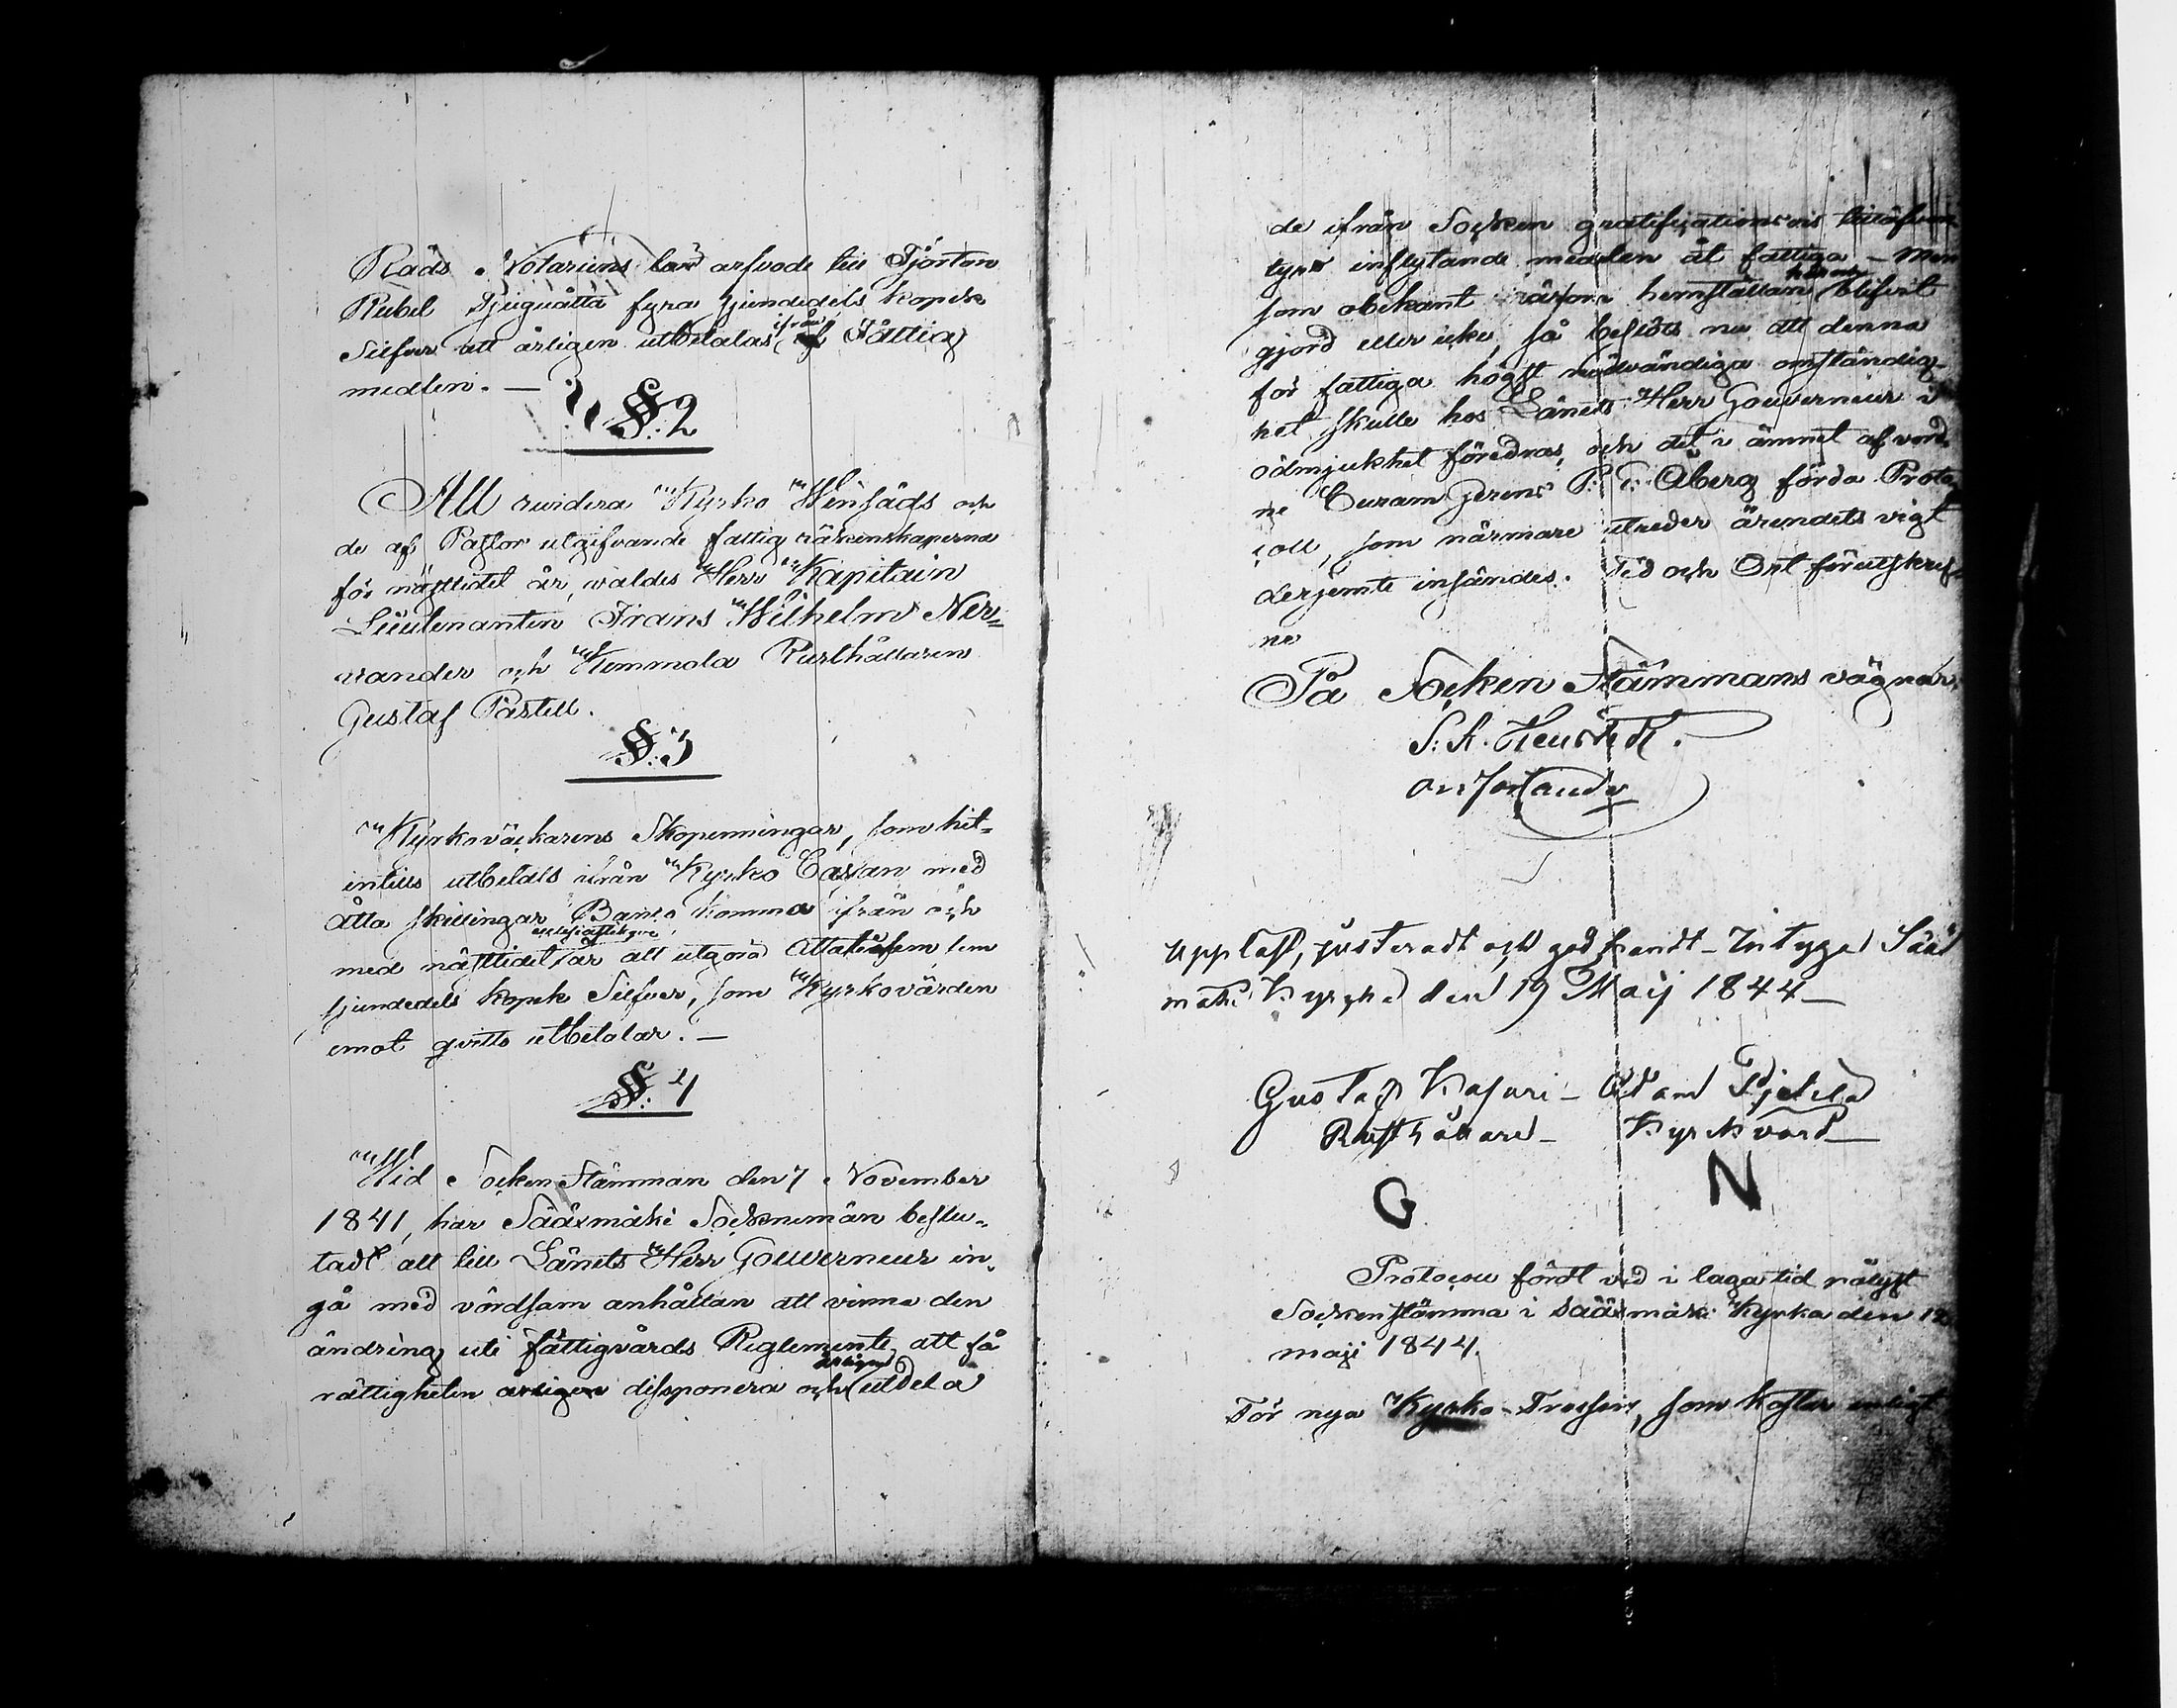 Råds Notariens arfvode till Fjorton
Rubel Tjuguåtta fyra sjundedels kopek
Silfver att årligen utbetalas ifrån af Fattig
medlen. —
§: 2
Att revidera Kyrko Winsäds och
de af Pastor utgifvande fattig räkenskaperna
för nästlidet år, waldes Herr Kapitain
Lieutenanten Frans Wilhelm Ner=
vander och Hemmola Rusthållaren
Gustaf Pastell.
§: 3
Kyrkoväckarens Skopenningar, som hit=
intills utbetals ifrån Kyrko Cassan med
Åtta skillingar Banko komma ifrån och
med nästlidet ecklesiastik år att utgöra Åttatiofem fem
sjundedels kopek Silfver, som Kyrkovärden
emot qvitto utbetalar. —
§: 4
Wid Socken Stämman den 7 November
1841, har Sääxmäki Socknemän beslu=
tadt att till Länets Herr Gouverneur in=
gå med vördsam anhållan att vinna den
ändring uti fattigvårds Reglemente, att få
rättigheten årligen dissponera och årligen utdela
de ifrån Socken gratifications vis
inflytande medlen åt fattiga — Men
som obekant är, om hemställan härom blifvit
gjord eller icke, så beslöts nu att denna
för fattiga högst nödvändiga omständig=
het skulle hos Länets Herr Gouverneur i
ödmjukhet föredras, och det i ämnet af
ne Curam Gerens P: Åberg förda Proto
coll, som närmare utreder ärendets vigt
derjemte insändes. Tid och Ort förutskref=
ne
På Socken Stämmans vägnar.
ordförande
Uppläst, justeradt och godkändt — Intygad Sääx
mäki Kyrcka den 19 Maij 1844 —
Gustaf Kasuri — Adam
Rusthållare — Kyrckvärd —
G N
Protocoll fördt vid i laga tid pålyst
Sockenstämma i Sääxmäki Kyrka den 19
maji 1844.
För nya Kyrko - som kostar enligt